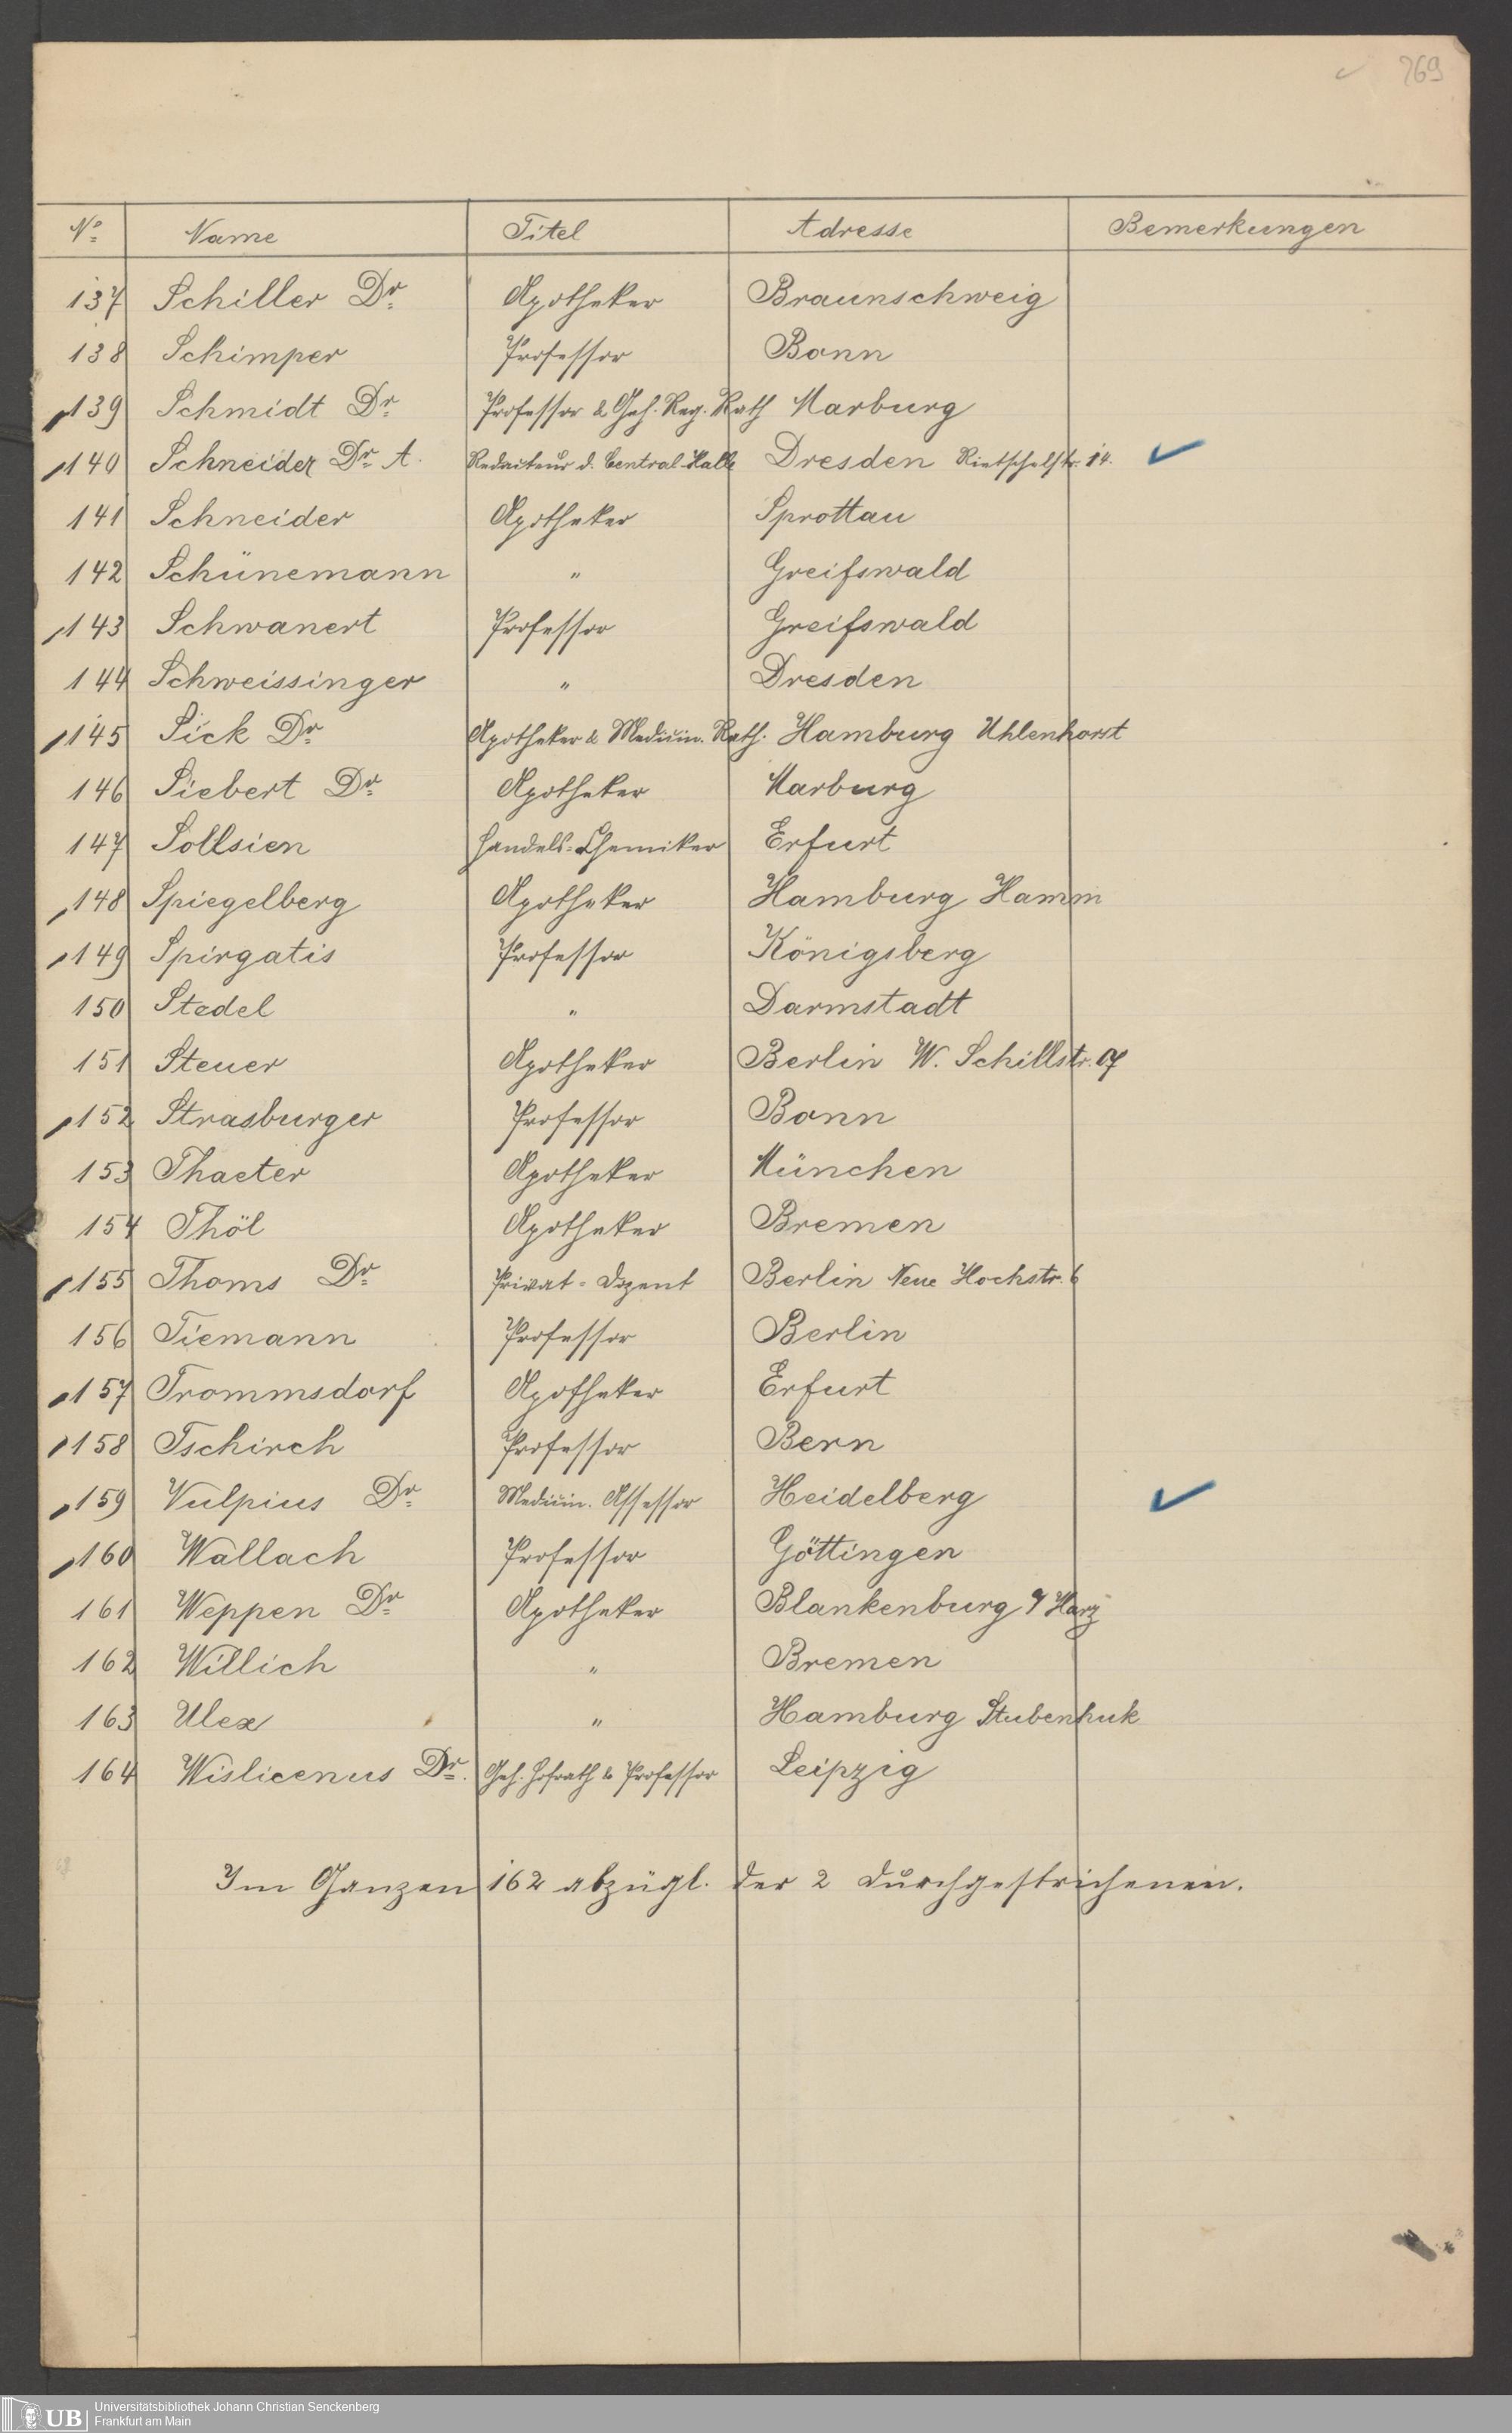 269
No Name Titel Adresse Bemerkungen
137 Schiller Dr Apotheker Braunschweig
138 Schimper Professor Bonn
139 Schmidt Dr Professor & Geh. Reg. Rath Marburg
140 Schneider Dr A. Redacteur d. Central-Halle Dresden Rietschelstr. 14.
141 Schneider Apotheker Sprottau
142 Schünemann " Greifswald
143 Schwanert Professor Greifswald
144 Schweissinger " Dresden
145 Sick Dr Apotheker & Medicin. Rath. Hamburg Uhlenhorst
146 Siebert Dr Apotheker Marburg
147 Sollsien Handels-Chemiker Erfurt
148 Spiegelberg Apotheker Hamburg Hamm
149 Spirgatis Professor Königsberg
150 Stedel " Darmstadt
151 Steuer Apotheker Berlin W. Schillstr.
152 Strasburger Professor Bonn
153 Thaeter Apotheker München
154 Thöl Apotheker Bremen
155 Thoms Dr Privat-Dozent Berlin Neue Hochstr. 6
156 Tiemann Professor Berlin
157 Trommsdorf Apotheker Erfurt
158 Tschirch Professor Bern
159 Vulpius Dr Medicin. Assessor Heidelberg
160 Wallach Professor Göttingen
161 Weppen Dr Apotheker Blankenburg Harz
162 Willich " Bremen
163 Ulex " Hamburg Stubenhuk
164 Wislicenus Dr. Geh. Hofrath & Professor Leipzig
Im Ganzen 162 abzügl. der 2 durchgestrichenen.
UB Universitätsbibliothek Johann Christian Senckenberg
Frankfurt am Main